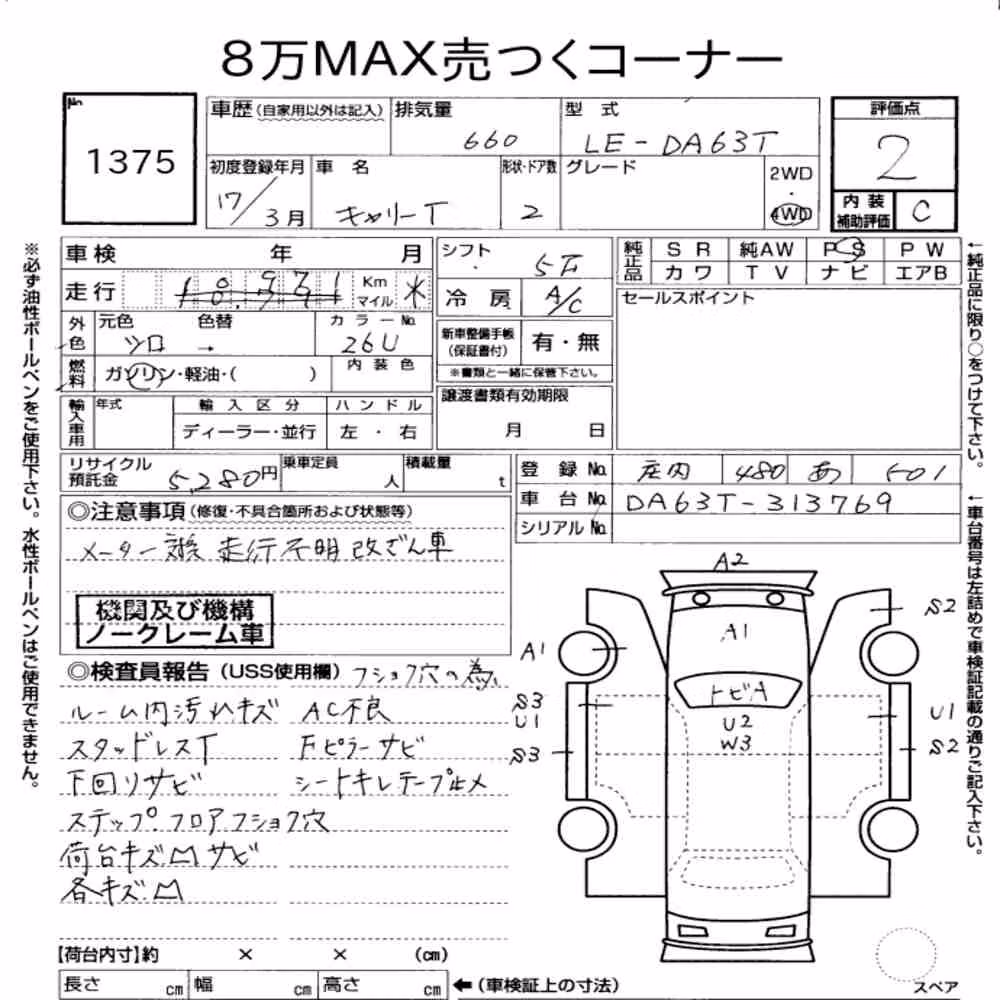 8万MAX売つくコーナー
No.
1375
車歴(自家用以外は記入)
排気量
660
型式
LE-DA63T
評価点
2
初度登録年月
17/3月
車名
キャリーT
形状・ドア数
2
グレード
2WD
・
4WD
内装
補助評価
C
車検 年 月
シフト
5F
純正品
SR 純AW PS PW
カワ TV ナビ エアB
走行
Km
マイル
冷房
A/C
セールスポイント
外色
元色 色替
ツロ →
カラーNo.
26U
新車整備手帳
(保証書付)
有・無
※書類と一緒に保管下さい。
燃料
ガソリン・軽油・( )
内装色
譲渡書類有効期限
月 日
輸入車用
年式
輸入区分
ディーラー・並行
ハンドル
左・右
リサイクル
預託金
5,280円
乗車定員
人
積載量
t
登録No. 庄内 480 あ 501
車台No. DA63T-313769
シリアルNo.
◎注意事項(修復・不具合箇所および状態等)
メーター交換 走行不明 改ざん車
機関及び機構
ノークレーム車
◎検査員報告(USS使用欄) フショク穴の為
ルーム内汚れキズ AC不良
スタッドレスT Fピラーサビ
下回りサビ シートキレテープ止メ
ステップ.フロアフショク穴
荷台キズ凹サビ
各キズ凹
A2
A1
S2
A1
トビA
S3
U1
U2
W3
U1
S3
S2
スペア
【荷台内寸】約 × × (cm)
長さ cm 幅 cm 高さ cm ←(車検証上の寸法)
※必ず油性ボールペンをご使用下さい。水性ボールペンはご使用できません。
←純正品に限り○をつけて下さい。
←車台番号は左詰めで車検証記載の通りご記入下さい。